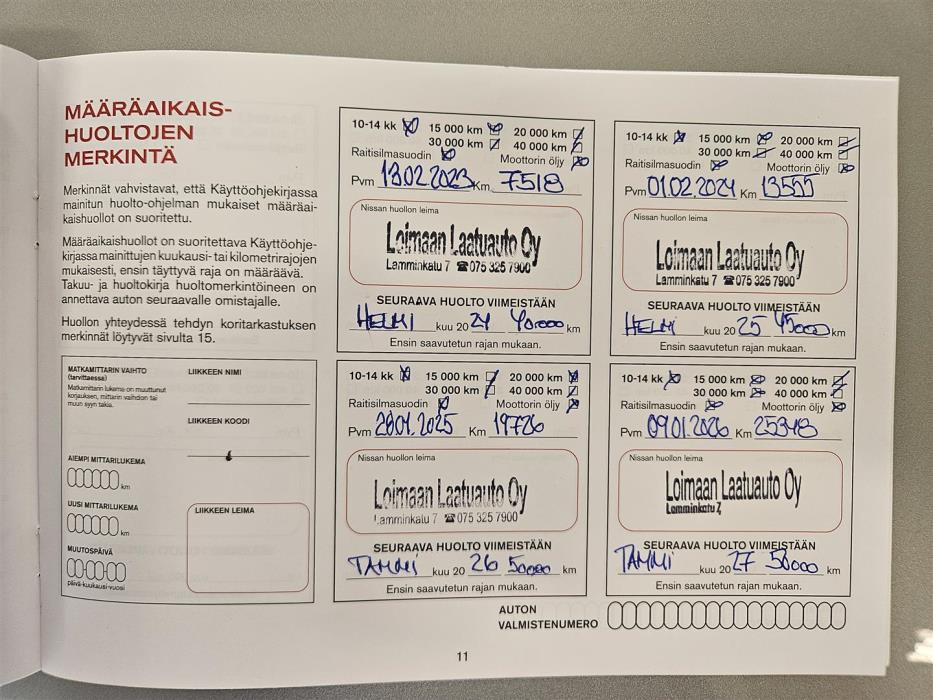 MÄÄRÄAIKAIS-
HUOLTOJEN
MERKINTÄ
Merkinnät vahvistavat, että Käyttöohjekirjassa
mainitun huolto-ohjelman mukaiset määräai-
kaishuollot on suoritettu.
Määräaikaishuollot on suoritettava Käyttöohje-
kirjassa mainittujen kuukausi- tai kilometrirajojen
mukaisesti, ensin täyttyvä raja on määräävä.
Takuu- ja huoltokirja huoltomerkintöineen on
annettava auton seuraavalle omistajalle.
Huollon yhteydessä tehdyn koritarkastuksen
merkinnät löytyvät sivulta 15.
MATKAMITTARIN VAIHTO
(tarvittaessa)
Matkamittarin lukema on muuttunut
korjauksen, mittarin vaihdon tai
muun syyn takia.
AIEMPI MITTARILUKEMA
km
UUSI MITTARILUKEMA
km
MUUTOSPÄIVÄ
päivä-kuukausi-vuosi
LIIKKEEN NIMI
LIIKKEEN KOODI
LIIKKEEN LEIMA
10-14 kk 15 000 km 20 000 km
30 000 km 40 000 km
Raitisilmasuodin Moottorin öljy
Pvm 13.02.2023 Km 7518
Nissan huollon leima
Loimaan Laatuauto Oy
Lamminkatu 7 ☎075 325 7900
SEURAAVA HUOLTO VIIMEISTÄÄN
HELMI kuu 20 24 40000 km
Ensin saavutetun rajan mukaan.
10-14 kk 15 000 km 20 000 km
30 000 km 40 000 km
Raitisilmasuodin Moottorin öljy
Pvm 01.02.2024 Km 13555
Nissan huollon leima
Loimaan Laatuauto Oy
Lamminkatu 7 ☎075 325 7900
SEURAAVA HUOLTO VIIMEISTÄÄN
HELMI kuu 20 25 45000 km
Ensin saavutetun rajan mukaan.
10-14 kk 15 000 km 20 000 km
30 000 km 40 000 km
Raitisilmasuodin Moottorin öljy
Pvm 28.01.2025 Km 19726
Nissan huollon leima
Loimaan Laatuauto Oy
Lamminkatu 7 ☎075 325 7900
SEURAAVA HUOLTO VIIMEISTÄÄN
TAMMI kuu 20 26 50000 km
Ensin saavutetun rajan mukaan.
10-14 kk 15 000 km 20 000 km
30 000 km 40 000 km
Raitisilmasuodin Moottorin öljy
Pvm 09.01.2026 Km 25348
Nissan huollon leima
Loimaan Laatuauto Oy
Lamminkatu 7
SEURAAVA HUOLTO VIIMEISTÄÄN
TAMMI kuu 20 27 km
Ensin saavutetun rajan mukaan.
AUTON
VALMISTENUMERO
11